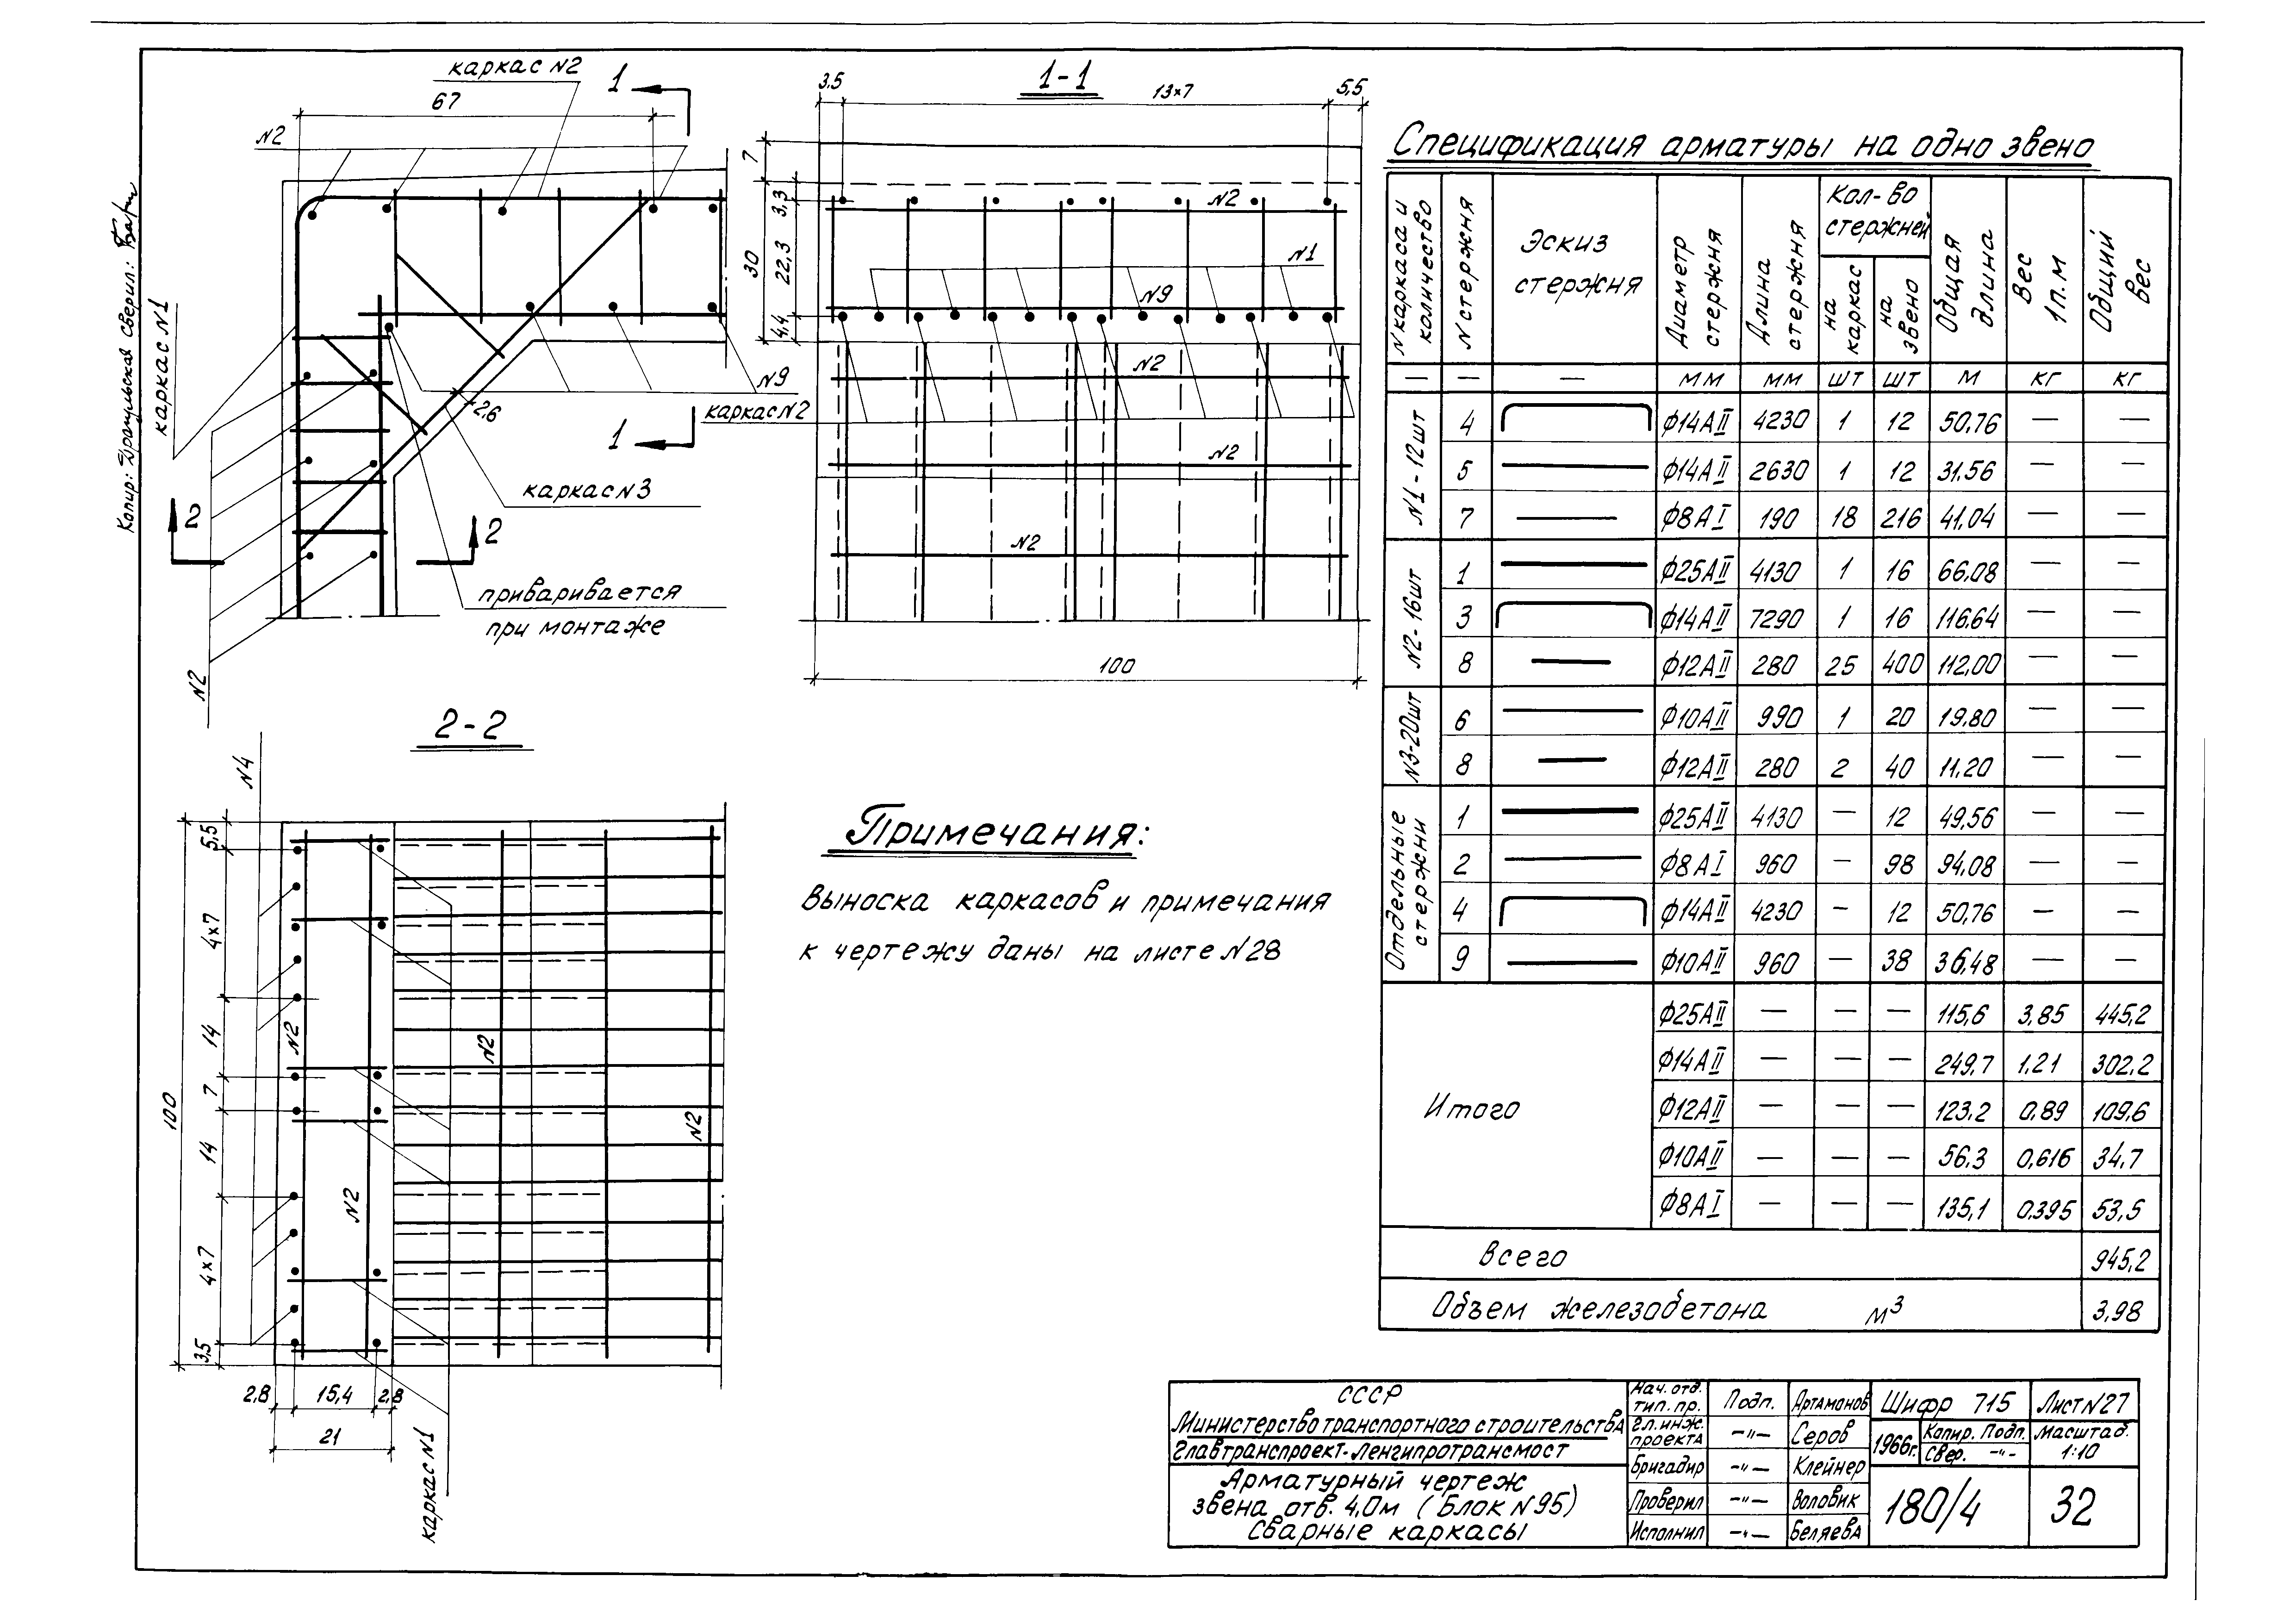 Копир: Драгульская сверил:
каркас N2
67
1
N2
каркас N1
N9
2,6
1
каркас N3
2
2
приваривается
при монтаже
N2
1-1
3,5
13×7
5,5
7
3,3
30
22,3
4,4
N2
N1
N9
каркас N2
N2
N2
N2
100
2-2
N4
5,5
4×7
14
7
14
4×7
3,5
100
N2
N2
N2
N2
2,8
15,4
2,8
21
каркас N1
Примечания:
Выноска каркасов и примечания
к чертежу даны на листе N28
Спецификация арматуры на одно звено
N каркаса и количество
N стержня
Эскиз стержня
Диаметр стержня
Длина стержня
Кол-во стержней
на каркас
на звено
Общая длина
Вес 1п.м
Общий вес
— — — мм мм шт шт м кг кг
N1-12шт
4 Ф14АII 4230 1 12 50,76 — —
5 Ф14АII 2630 1 12 31,56 — —
7 Ф8АI 190 18 216 41,04 — —
N2-16шт
1 Ф25АII 4130 1 16 66,08 — —
3 Ф14АII 7290 1 16 116,64 — —
8 Ф12АII 280 25 400 112,00 — —
N3-20шт
6 Ф10АII 990 1 20 19,80 — —
8 Ф12АII 280 2 40 11,20 — —
Отдельные стержни
1 Ф25АII 4130 — 12 49,56 — —
2 Ф8АI 960 — 98 94,08 — —
4 Ф14АII 4230 — 12 50,76 — —
9 Ф10АII 960 — 38 36,48 — —
Итого
Ф25АII — — — 115,6 3,85 445,2
Ф14АII — — — 249,7 1,21 302,2
Ф12АII — — — 123,2 0,89 109,6
Ф10АII — — — 56,3 0,616 34,7
Ф8АI — — — 135,1 0,395 53,5
Всего 945,2
Объем железобетона м³ 3,98
СССР
Министерство транспортного строительства
Главтранспроект-Ленгипротрансмост
Арматурный чертеж
звена отв. 4,0м (Блок N95)
Сварные каркасы
Нач. отд. тип. пр. Подп. Артамонов
Гл. инж. проекта —"— Серов
Бригадир —"— Клейнер
Проверил —"— Воловик
Исполнил —"— Беляева
Шифр 715
Лист N27
1966г.
Копир. Подп.
Свер. —"—
Масштаб
1:10
180/4
32